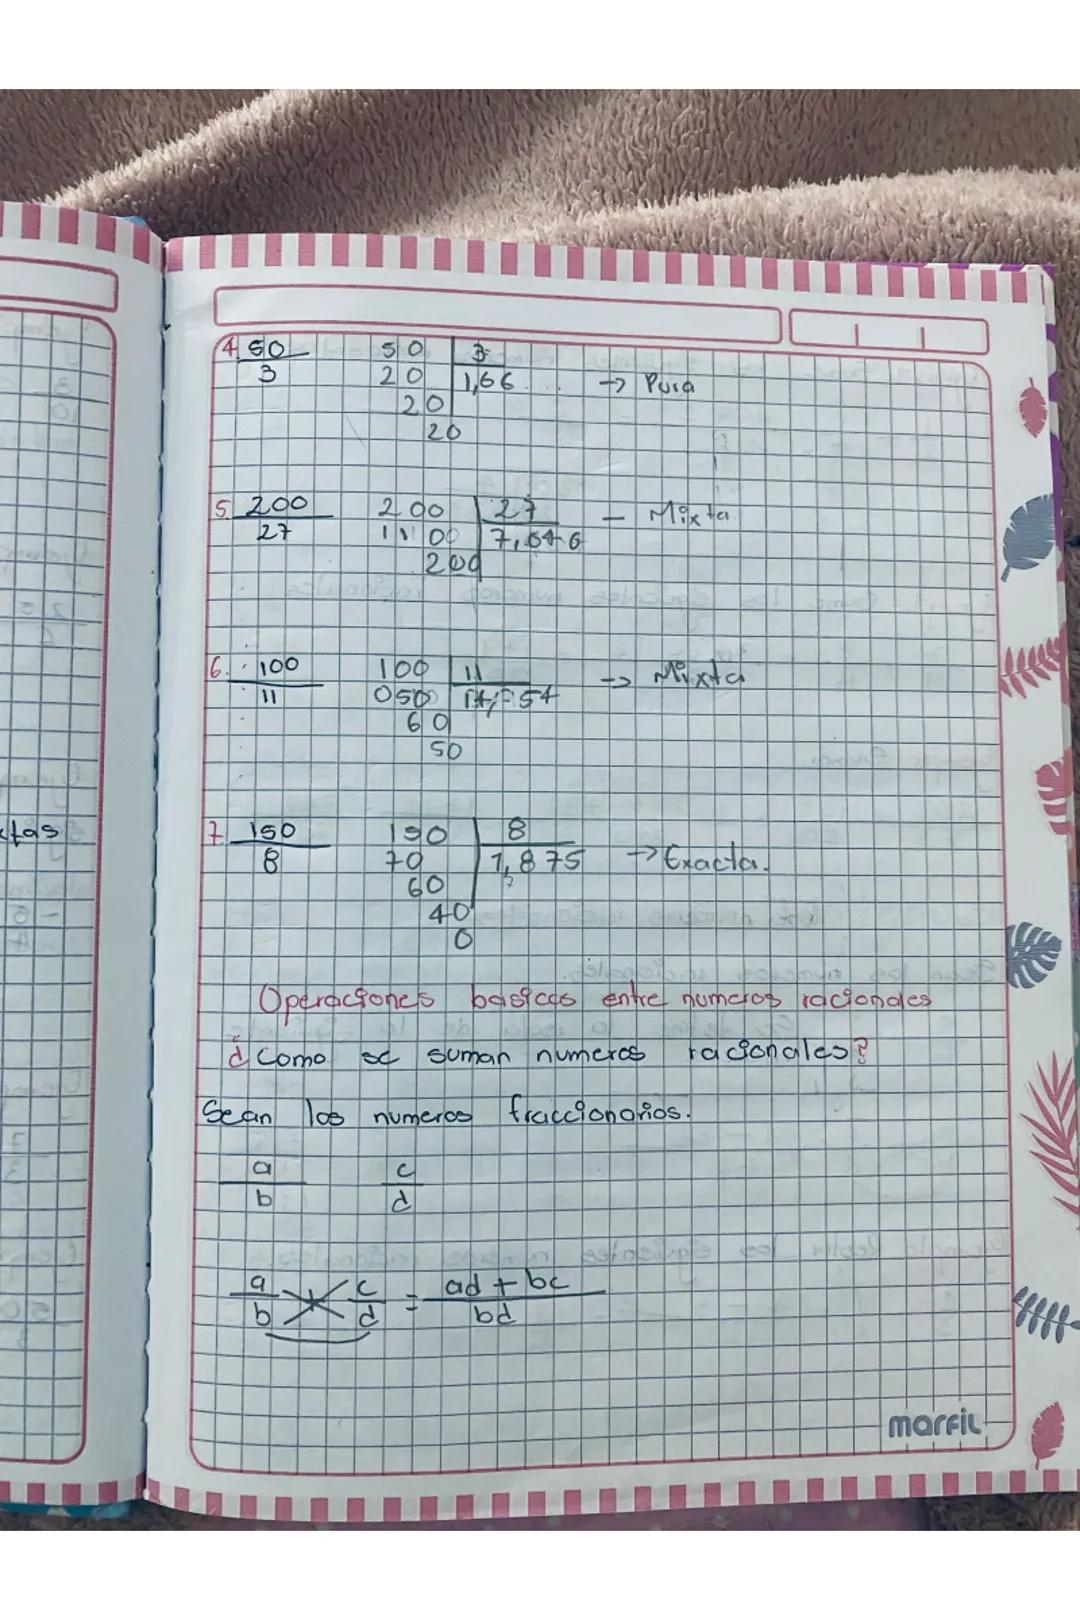 4. 50/3 50 | 3
20 | 1,66... → Pura
20
20
5. 200/27 200 | 27 - Mixta
1100
200
6. 100/11 100 | 11 → Mixta
050
60
50
7. 150/8 150 | 8
70 | 1,875 → Exacta.
60
40
0
Operaciones basicas entre numeros racionales
¿Como se suman numeros racionales?
Sean los numeros fraccionarios.
a/b c/d
a/b c/d = ad + bc/bd
marfil
ctas